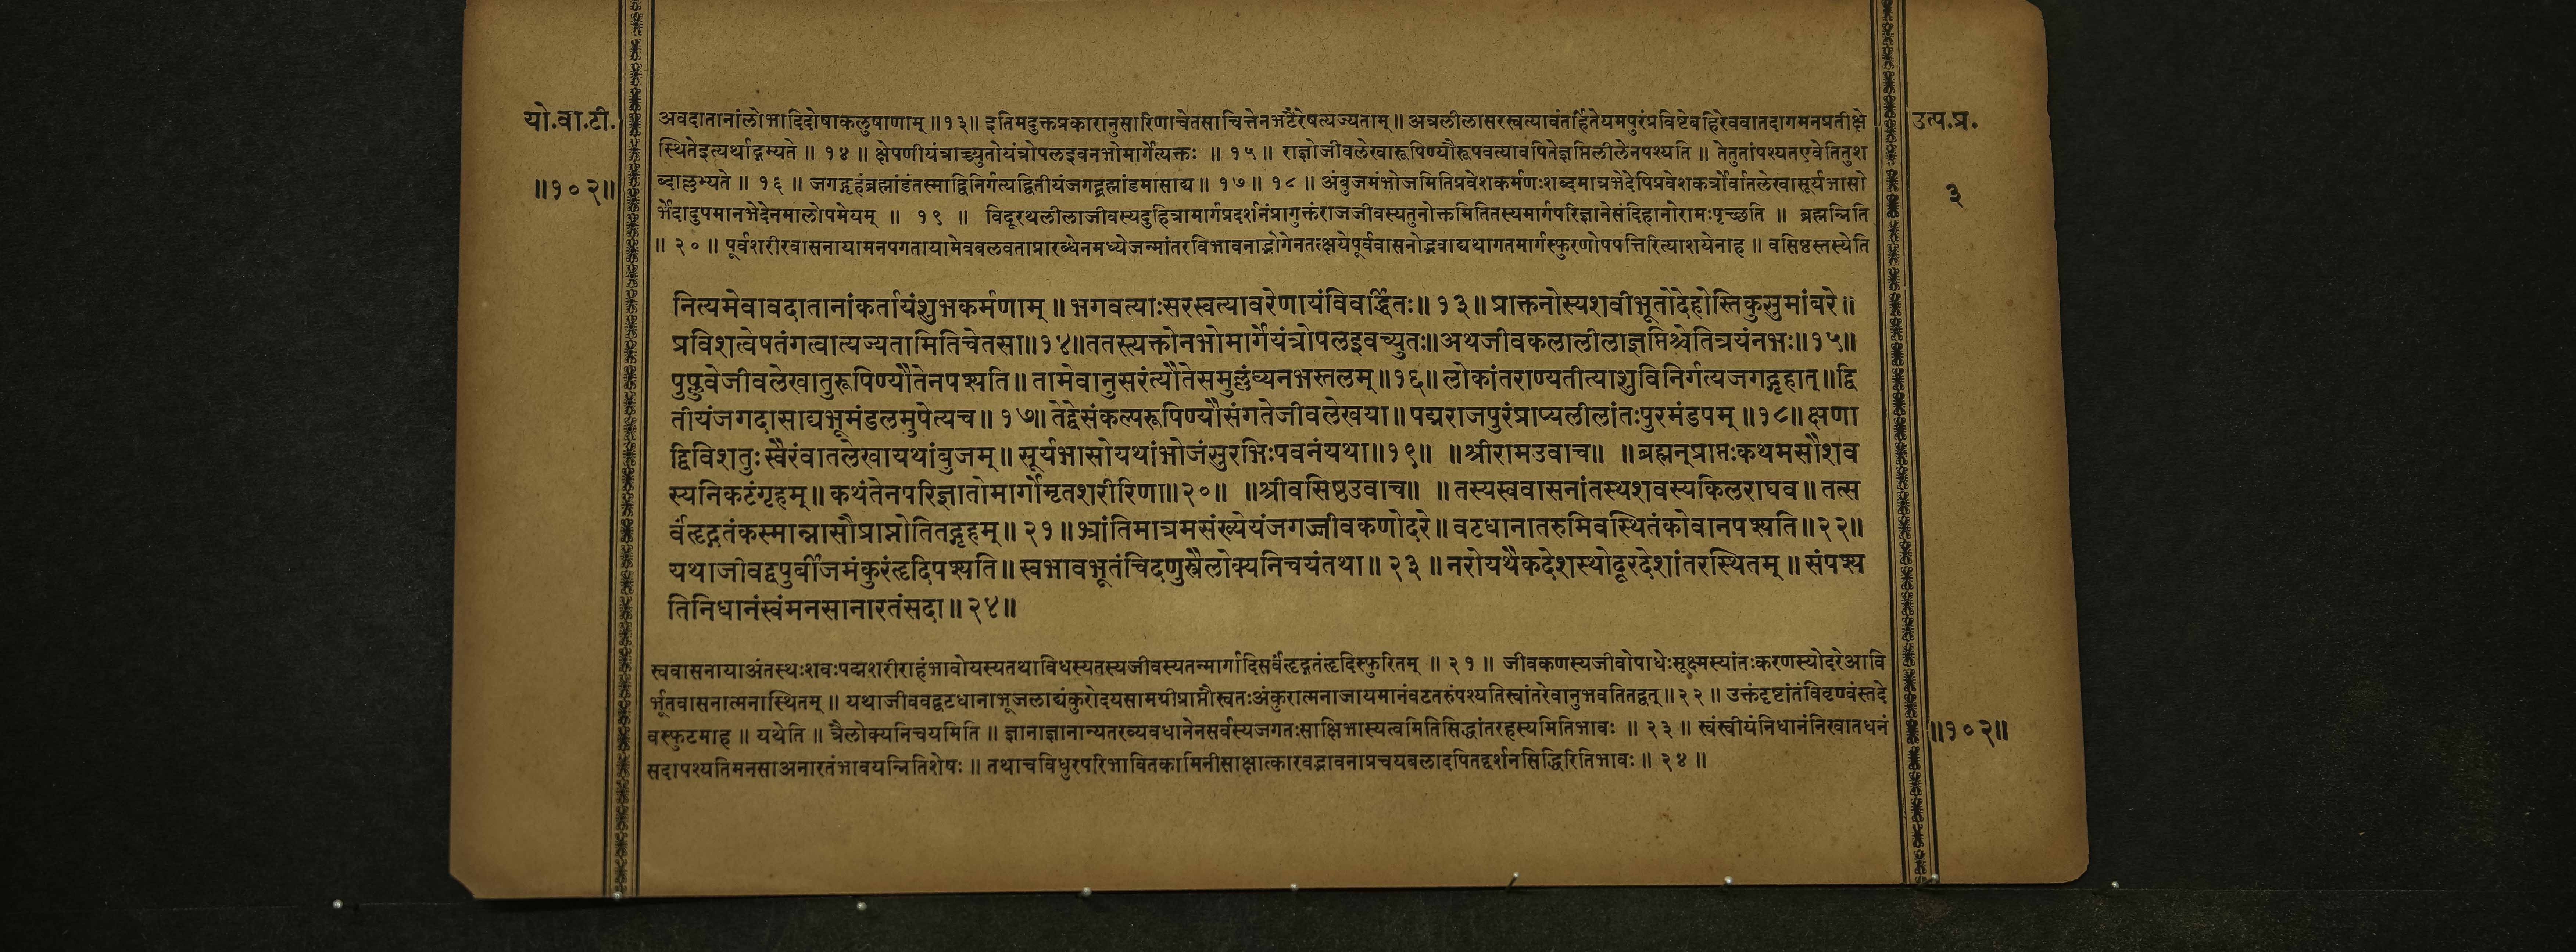 यो.वा.टी.
॥१०२॥
उत्प.प्र.
३
अवदातानांलोभादिदोषाकलुषाणाम् ॥१३॥ इतिमदुक्तप्रकारानुसारिणाचेतसाचित्तेनभटैरेषत्यज्यताम् ॥ अत्रलीलासरस्वत्यावंतर्हितेयमपुरंप्रविष्टेबहिरेववातदागमनप्रतीक्षे
स्थितेइत्यर्थाद्गम्यते ॥ १४ ॥ क्षेपणीयंत्राच्च्युतोयंत्रोपलइवनभोमार्गेत्यक्तः ॥ १५ ॥ राज्ञोजीवलेखारूपिण्यौरूपवत्यावपितेज्ञप्तिलीलेनपश्यति ॥ तेतुतांपश्यतएवेतितुश
ब्दाल्लभ्यते ॥ १६ ॥ जगद्गृहंब्रह्मांडंतस्माद्विनिर्गत्यद्वितीयंजगद्ब्रह्मांडमासाद्य ॥ १७ ॥ १८ ॥ अंबुजमंभोजमितिप्रवेशकर्मणःशब्दमात्रभेदेपिप्रवेशकर्त्रोर्वातलेखासूर्यभासो
र्भेदादुपमानभेदेनमालोपमेयम् ॥ १९ ॥ विदूरथलीलाजीवस्यदुहित्रामार्गप्रदर्शनंप्रागुक्तंराजजीवस्यतुनोक्तमितितस्यमार्गपरिज्ञानेसंदिहानोरामःपृच्छति ॥ ब्रह्मन्निति
॥ २० ॥ पूर्वशरीरवासनायामनपगतायामेवबलवताप्रारब्धेनमध्येजन्मांतरविभावनाद्भोगेनतत्क्षयेपूर्ववासनोद्भवाद्यथागतमार्गस्फुरणोपपत्तिरित्याशयेनाह ॥ वसिष्ठस्तस्येति
नित्यमेवावदातानांकर्तायंशुभकर्मणाम् ॥ भगवत्याःसरस्वत्यावरेणायंविवर्द्धितः॥ १३॥ प्राक्तनोस्यशवीभूतोदेहोस्तिकुसुमांबरे॥
प्रविशत्वेषतंगत्वात्यज्यतामितिचेतसा॥१४॥ततस्त्यक्तोनभोमार्गेयंत्रोपलइवच्युतः॥अथजीवकलालीलाज्ञप्तिश्चेतित्रयंनभः॥१५॥
पुप्लुवेजीवलेखातुरूपिण्यौतेनपश्यति॥ तामेवानुसरंत्यौतेसमुल्लंघ्यनभस्तलम्॥१६॥ लोकांतराण्यतीत्याशुविनिर्गत्यजगद्गृहात्॥द्वि
तीयंजगदासाद्यभूमंडलमुपेत्यच॥ १७॥ तेद्वेसंकल्परूपिण्यौसंगतेजीवलेखया॥ पद्मराजपुरंप्राप्यलीलांतःपुरमंडपम् ॥१८॥ क्षणा
द्विविशतुः स्वैरंवातलेखायथांबुजम्॥ सूर्यभासोयथांभोजंसुरभिःपवनंयथा॥१९॥ ॥श्रीरामउवाच॥ ॥ब्रह्मन्प्राप्तःकथमसौशव
स्यनिकटंगृहम्॥ कथंतेनपरिज्ञातोमार्गोमृतशरीरिणा॥२०॥ ॥श्रीवसिष्ठउवाच॥ ॥तस्यस्ववासनांतस्थशवस्यकिलराघव॥ तत्स
र्वंहृद्गतंकस्मान्नासौप्राप्नोतितद्गृहम्॥ २१॥ भ्रांतिमात्रमसंख्येयंजगज्जीवकणोदरे॥ वटधानातरुमिवस्थितंकोवानपश्यति॥२२॥
यथाजीवद्वपुर्बीजमंकुरंहृदिपश्यति॥ स्वभावभूतंचिदणुस्त्रैलोक्यनिचयंतथा॥ २३॥ नरोयथैकदेशस्थोदूरदेशांतरस्थितम् ॥ संपश्य
तिनिधानंस्वंमनसानारतंसदा॥ २४॥
स्ववासनायाअंतस्थःशवःपद्मशरीराहंभावोयस्यतथाविधस्यतस्यजीवस्यतन्मार्गादिसर्वंहृद्गतंहृदिस्फुरितम् ॥ २१ ॥ जीवकणस्यजीवोपाधेःसूक्ष्मस्यांतःकरणस्योदरेआवि
र्भूतवासनात्मनास्थितम् ॥ यथाजीववद्वटधानाभूजलाद्यंकुरोदयसामग्रीप्राप्तौस्वतःअंकुरात्मनाजायमानंवटतरुंपश्यतिस्वांतरेवानुभवतितद्वत् ॥२२ ॥ उक्तंदृष्टांतंविवृण्वंस्तदे
वस्फुटमाह ॥ यथेति ॥ त्रैलोक्यनिचयमिति ॥ ज्ञानाज्ञानान्यतरव्यवधानेनसर्वस्यजगतःसाक्षिभास्यत्वमितिसिद्धांतरहस्यमितिभावः ॥ २३ ॥ स्वंस्वीयंनिधानंनिखातधनं
सदापश्यतिमनसाअनारतंभावयन्नितिशेषः ॥ तथाचविधुरपरिभावितकामिनीसाक्षात्कारवद्भावनाप्रचयबलादपितद्दर्शनसिद्धिरितिभावः ॥ २४ ॥
॥१०२॥